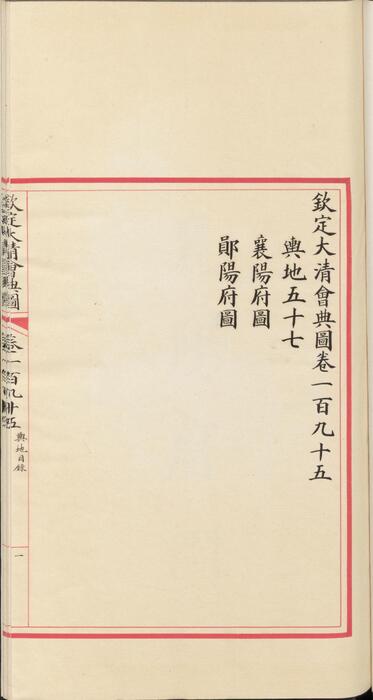 欽定大清會典圖卷一百九十五
輿地五十七
襄陽府圖
鄖陽府圖
欽定大清會典圖
卷一百九十五
輿地目録
一